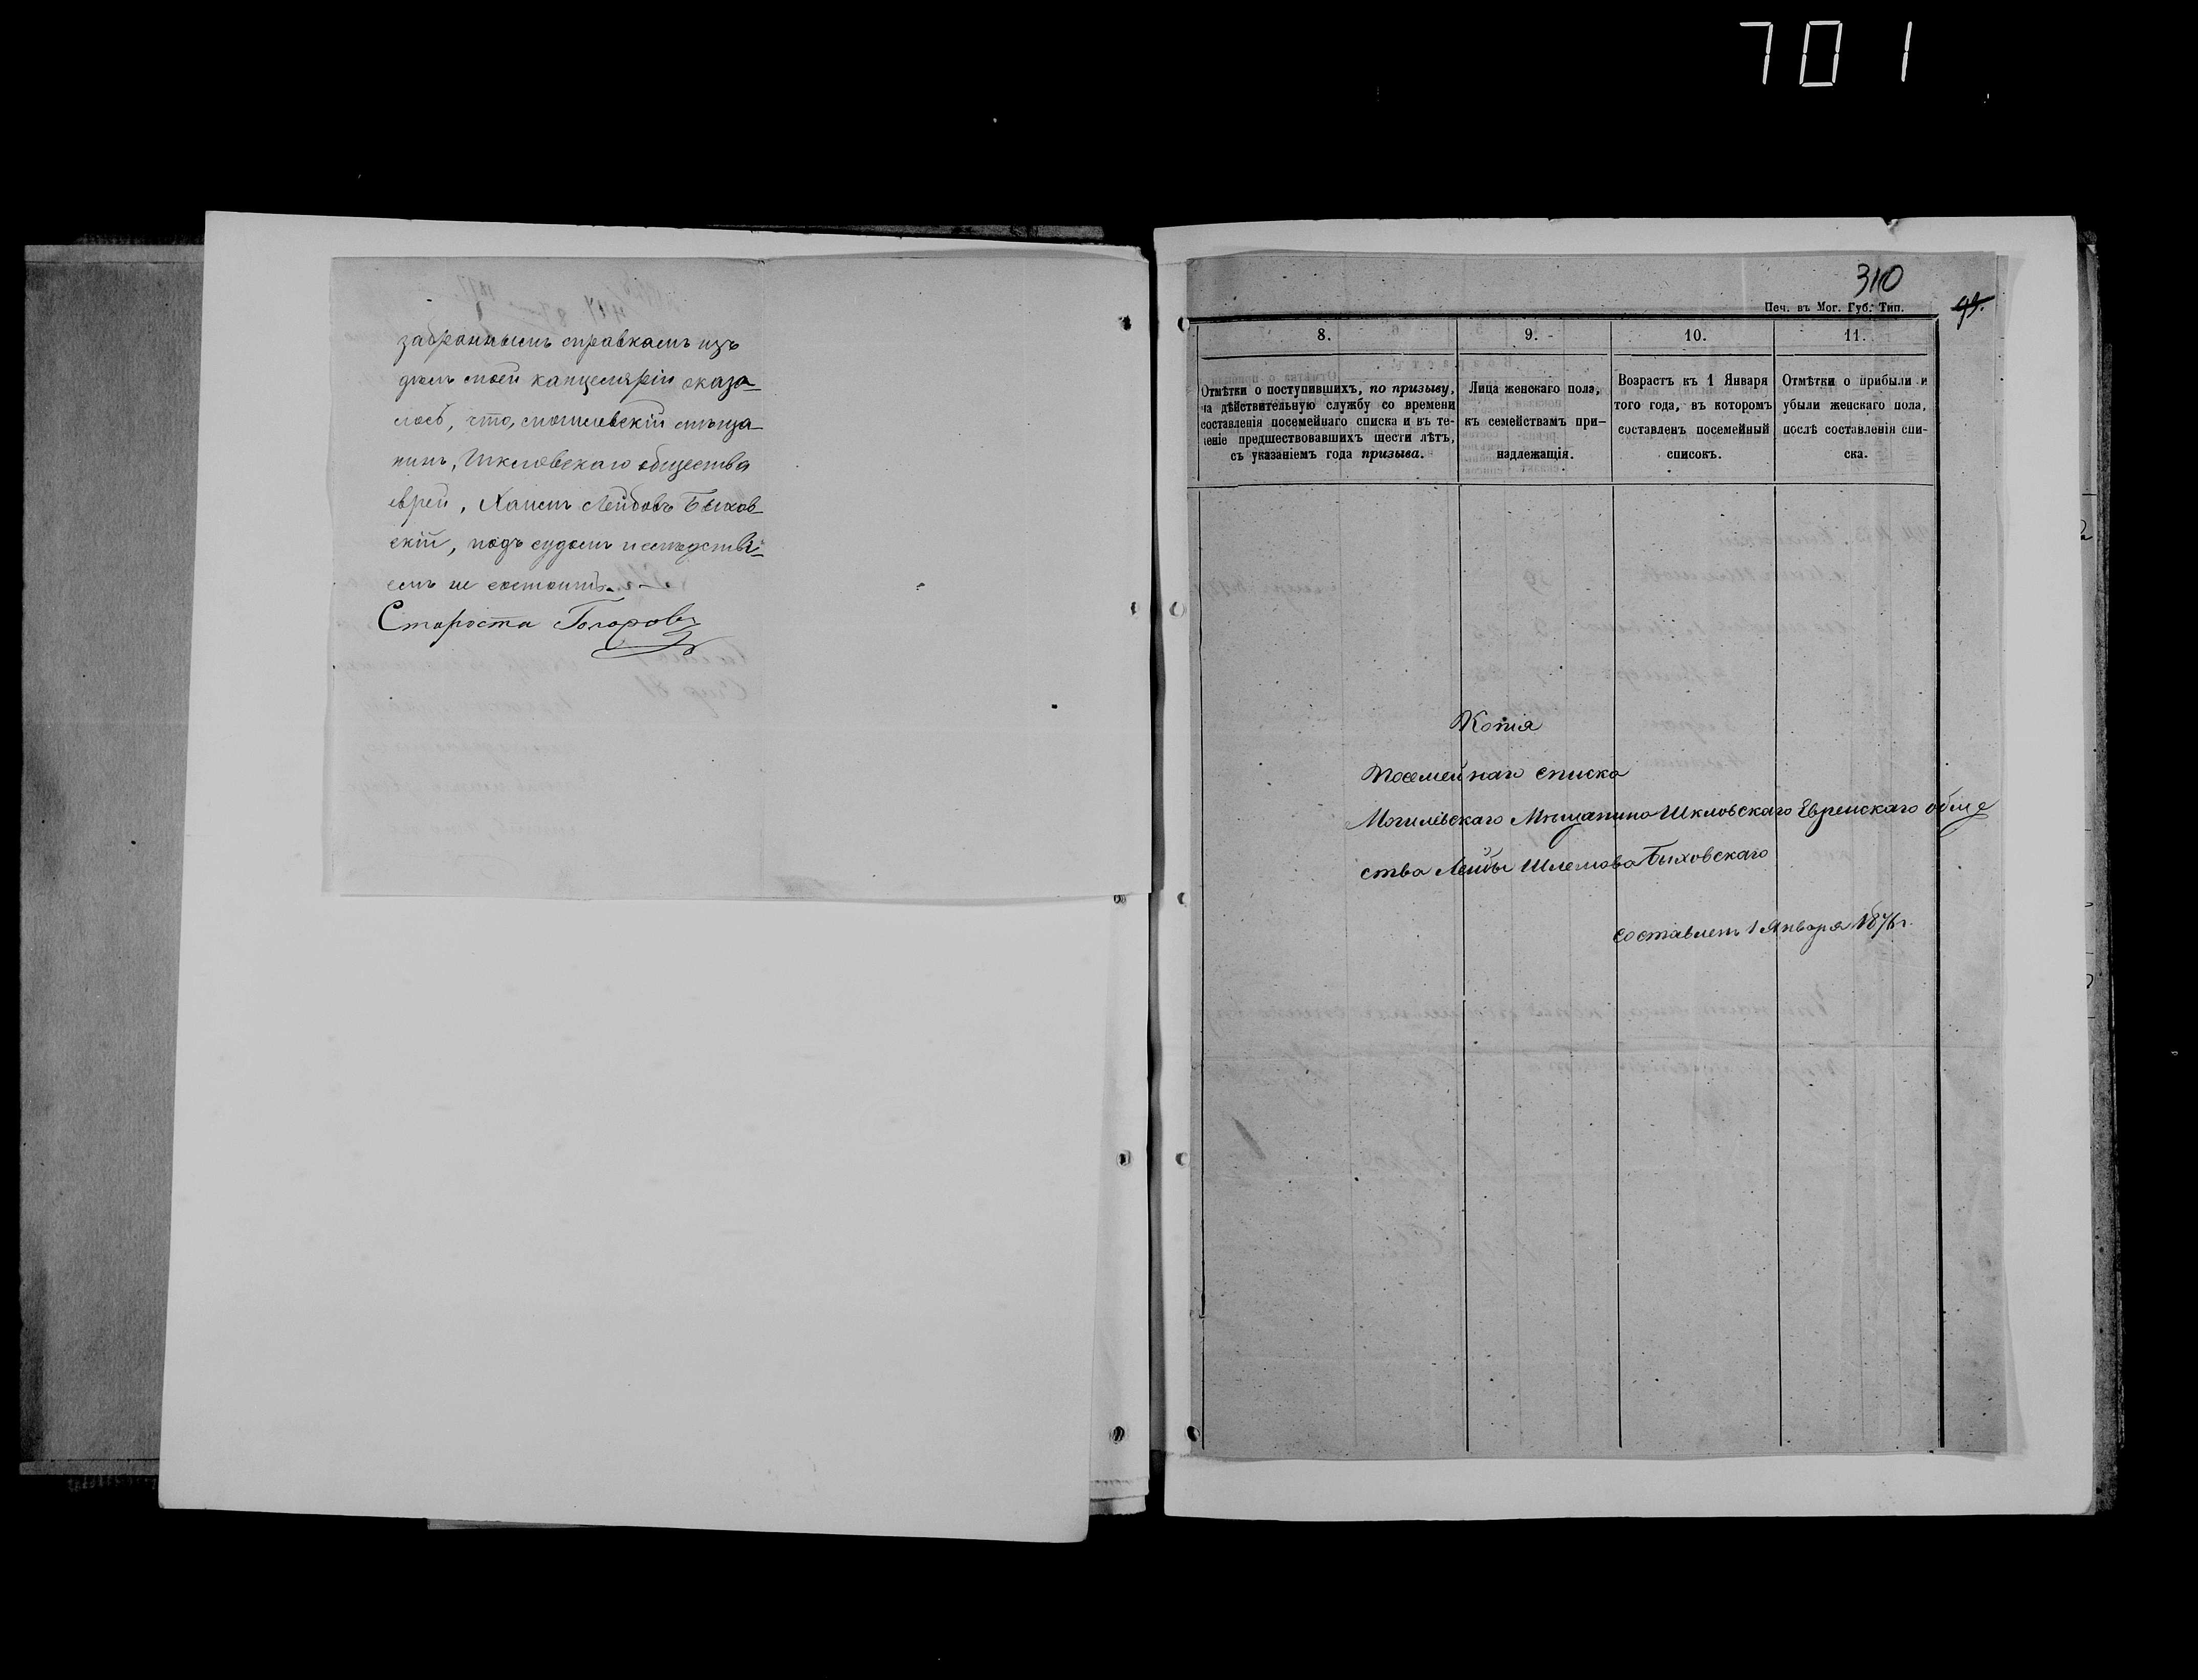 701
забраннымъ справкамъ изъ
дѣлъ моей канцеляріи оказа-
лось, что, могилевскій мѣща-
нинъ, Шкловскаго общества
еврей, Хаимъ Лейбовъ Быхов-
скій, подъ судомъ и слѣдстві-
емъ не состоитъ.
Староста
310
Печ. въ Мог. Губ. Тип.
8.
Отмѣтки о поступившихъ, по призыву,
на дѣйствительную службу со времени
составленія посемейнаго списка и въ те-
ченіе предшествовавшихъ шести лѣтъ,
съ указаніемъ года призыва.
9.
Лица женскаго пола,
къ семействамъ при-
надлежащія.
10.
Возрастъ къ 1 Января
того года, въ которомъ
составленъ посемейный
списокъ.
11.
Отмѣтки о прибыли и
убыли женскаго пола,
послѣ составленія спи-
ска.
Копія
Посемейнаго списка
Могилевскаго Мѣщанина Шкловскаго Еврейскаго обще
ства Лейбы Шлемова Быховскаго
составленъ 1 Января 1876 г.